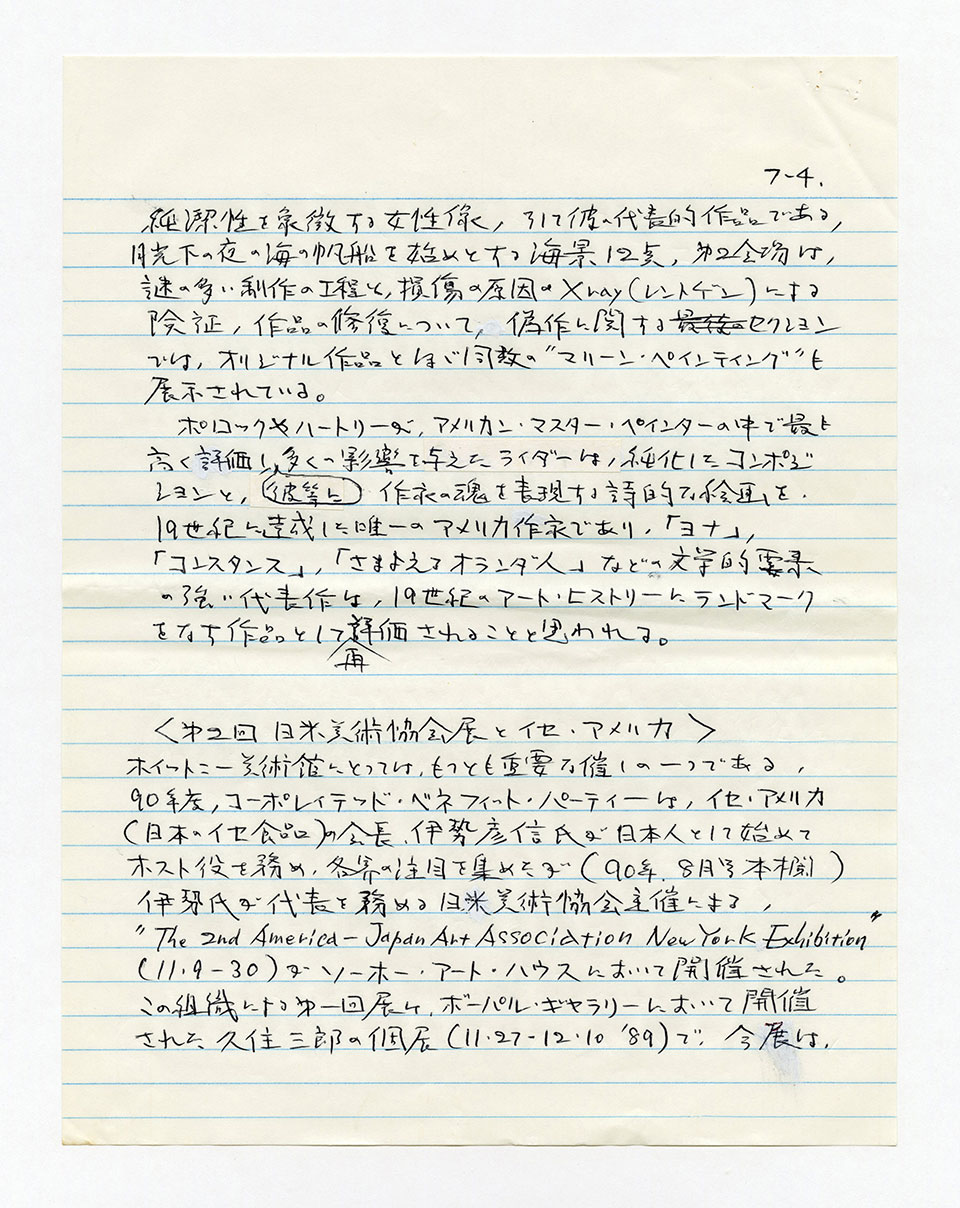 7-4.
純潔性を象徴する女性像, そして彼の代表的作品である,
月光下の夜の海の帆船を始めとする海景12点, 第2会場は,
謎の多い制作の工程と, 損傷の原因のXray(レントゲン)による
険証, 作品の修復について, 偽作に関する最後のセクション
では, オリジナル作品とほぼ同数の"マリーン・ペインティング"も
展示されている。
ポロックやハートリーが, アメリカン・マスター・ペインターの中で最も
高く評価し, 多くの影響を与えたライダーは, 純化したコンポジ
ションと, 彼等に 作家の魂を表現する詩的な絵画」を.
19世紀に達成した唯一のアメリカ作家であり, 「ヨナ」,
「コンスタンス」, 「さまよえるオランダ人」などの文学的要素
の強い代表作は, 19世紀のアート・ヒストリーにランドマーク
をなす作品として評価されることと思われる。
再
〈第2回 日米美術協会展とイセ・アメリカ〉
ホイットニー美術館にとっては, もっとも重要な催しの一つである,
90年度, コーポレイテッド・ベネフィット・パーティーは, イセ・アメリカ
(日本のイセ食品)の会長, 伊勢彦信氏が日本人として始めて
ホスト役を務め, 各界の注目を集めたが (90年. 8月号本欄)
伊勢氏が代表を務める日米美術協会主催による,
"The 2nd America-Japan Art Association New York Exhibition"
(11.9-30)がソーホー・アート・ハウスにおいて開催された。
この組織による第一回展は, ボーパル・ギャラリーにおいて開催
された久住三郎の個展(11.27-12.10 '89)で, 今展は,